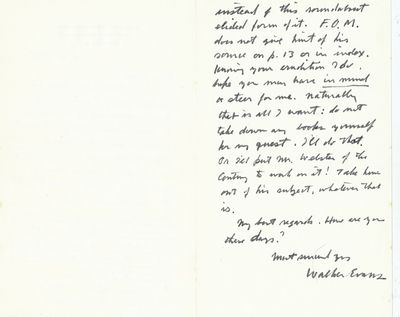 instead of this roundabout
elided form of it. F. O. M.
does not give hint of his
source on p. 13 or in index.
Knowing your erudition I do
hope you may have in mind
a steer for me. Naturally
that is all I want: do not
take down any books yourself
for my quest. I'll do that.
Or I'll put Mr. Webster of the
Century to work on it! Take him
out of his subject, whatever that
is.
My best regards. How are you
these days?
Most sincerely yrs
Walker Evans